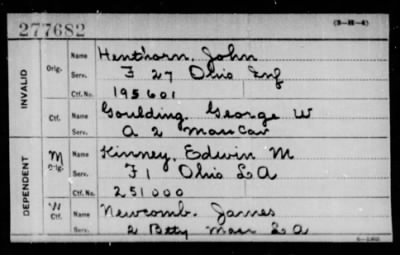 277682 (3-H-4)
INVALID
Orig. Name Henthorn, John
Serv. F 27 Ohio Inf
Ctf. No. 195601
Ctf. Name Goulding, George W
Serv. A 2 Mass Cav
DEPENDENT
M Orig. Name Kinney, Edwin M
Serv. F 1 Ohio L A
Ctf. No. 251000
W Ctf. Name Newcomb, James
Serv. 2 Batty Mass L A